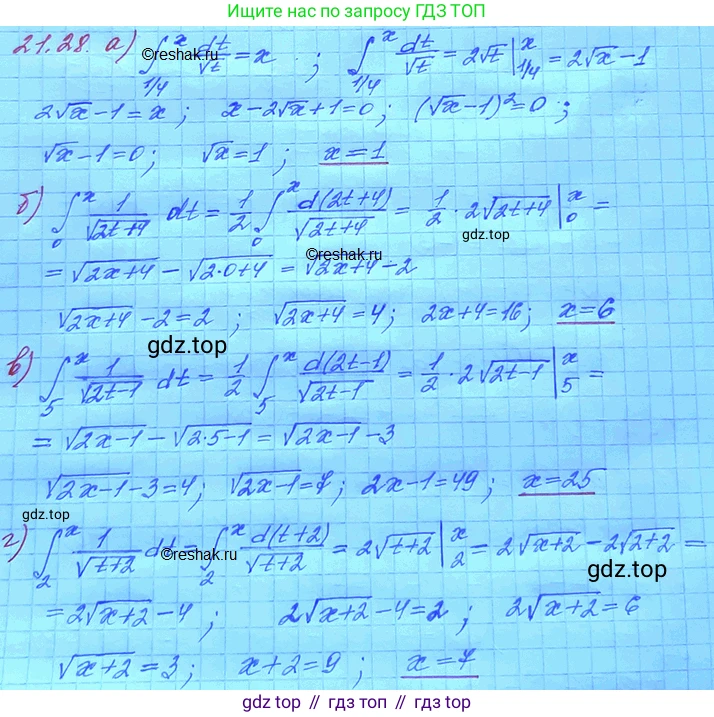 Ищите нас по запросу ГДЗ ТОП
21.28. а) ∫_{1/4}^{x} dt/√t = x ; ∫_{1/4}^{x} dt/√t = 2√t |_{1/4}^{x} = 2√x - 1
©reshak.ru
2√x - 1 = x ; x - 2√x + 1 = 0 ; (√x - 1)² = 0 ;
√x - 1 = 0 ; √x = 1 ; x = 1
б) ∫_{0}^{x} 1/√(2t+4) dt = 1/2 ∫_{0}^{x} d(2t+4)/√(2t+4) = 1/2 · 2√(2t+4) |_{0}^{x} =
gdz.top
©reshak.ru
= √(2x+4) - √(2·0+4) = √(2x+4) - 2
√(2x+4) - 2 = 2 ; √(2x+4) = 4 ; 2x+4 = 16 ; x = 6
gdz.top
в) ∫_{5}^{x} 1/√(2t-1) dt = 1/2 ∫_{5}^{x} d(2t-1)/√(2t-1) = 1/2 · 2√(2t-1) |_{5}^{x} =
= √(2x-1) - √(2·5-1) = √(2x-1) - 3
√(2x-1) - 3 = 4 ; √(2x-1) = 7 ; 2x-1 = 49 ; x = 25
gdz.top
г) ∫_{2}^{x} 1/√(t+2) dt = ∫_{2}^{x} d(t+2)/√(t+2) = 2√(t+2) |_{2}^{x} = 2√(x+2) - 2√(2+2) =
©reshak.ru
gdz.top
= 2√(x+2) - 4 ; 2√(x+2) - 4 = 2 ; 2√(x+2) = 6
√(x+2) = 3 ; x+2 = 9 ; x = 7
gdz.top // гдз топ // gdz top